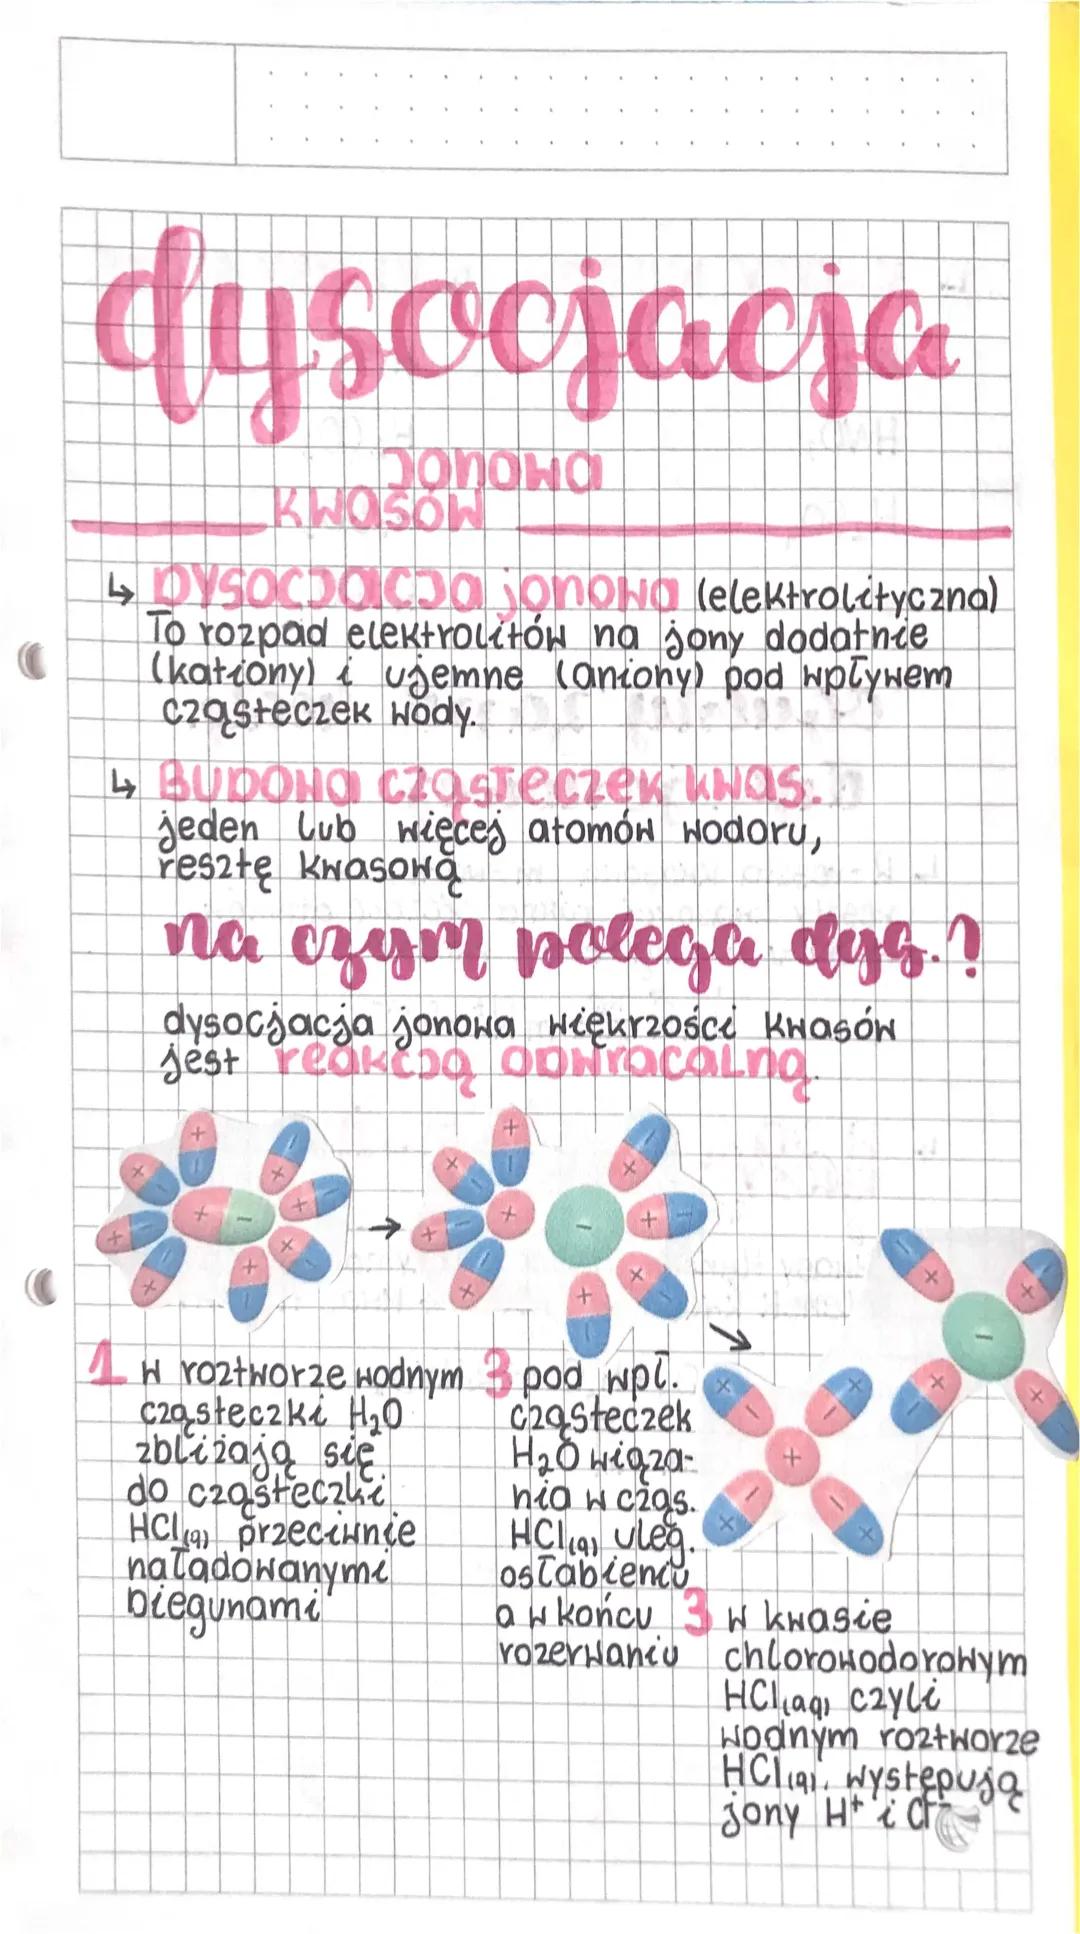 dysocjacja
jonowa
kwasów
↳ DYSOCJACJA jonowa (elektrolityczna)
To rozpad elektrolitów na jony dodatnie
(kationy) i ujemne (aniony) pod wpływem
cząsteczek wody.
↳ BUDOWA CZĄSTECZEK KWAS.
jeden lub więcej atomów wodoru,
resztę kwasową
na czym polega dys.?
dysocjacja jonowa więkrzości kwasów
jest reakcją odwracalną.
1 W roztworze wodnym
cząsteczki H₂O
zbliżają się
do cząsteczki
HCl(g) przeciwnie
naładowanymi
biegunami
3 pod wpł.
cząsteczek
H₂O wiąza-
nia w cząs.
HCl(g) uleg.
osłabieniu
a w końcu
rozerwaniu
3 W kwasie
chlorowodorowym
HCl(aq) czyli
wodnym roztworze
HCl(g). występują
jony H⁺ i Cl⁻